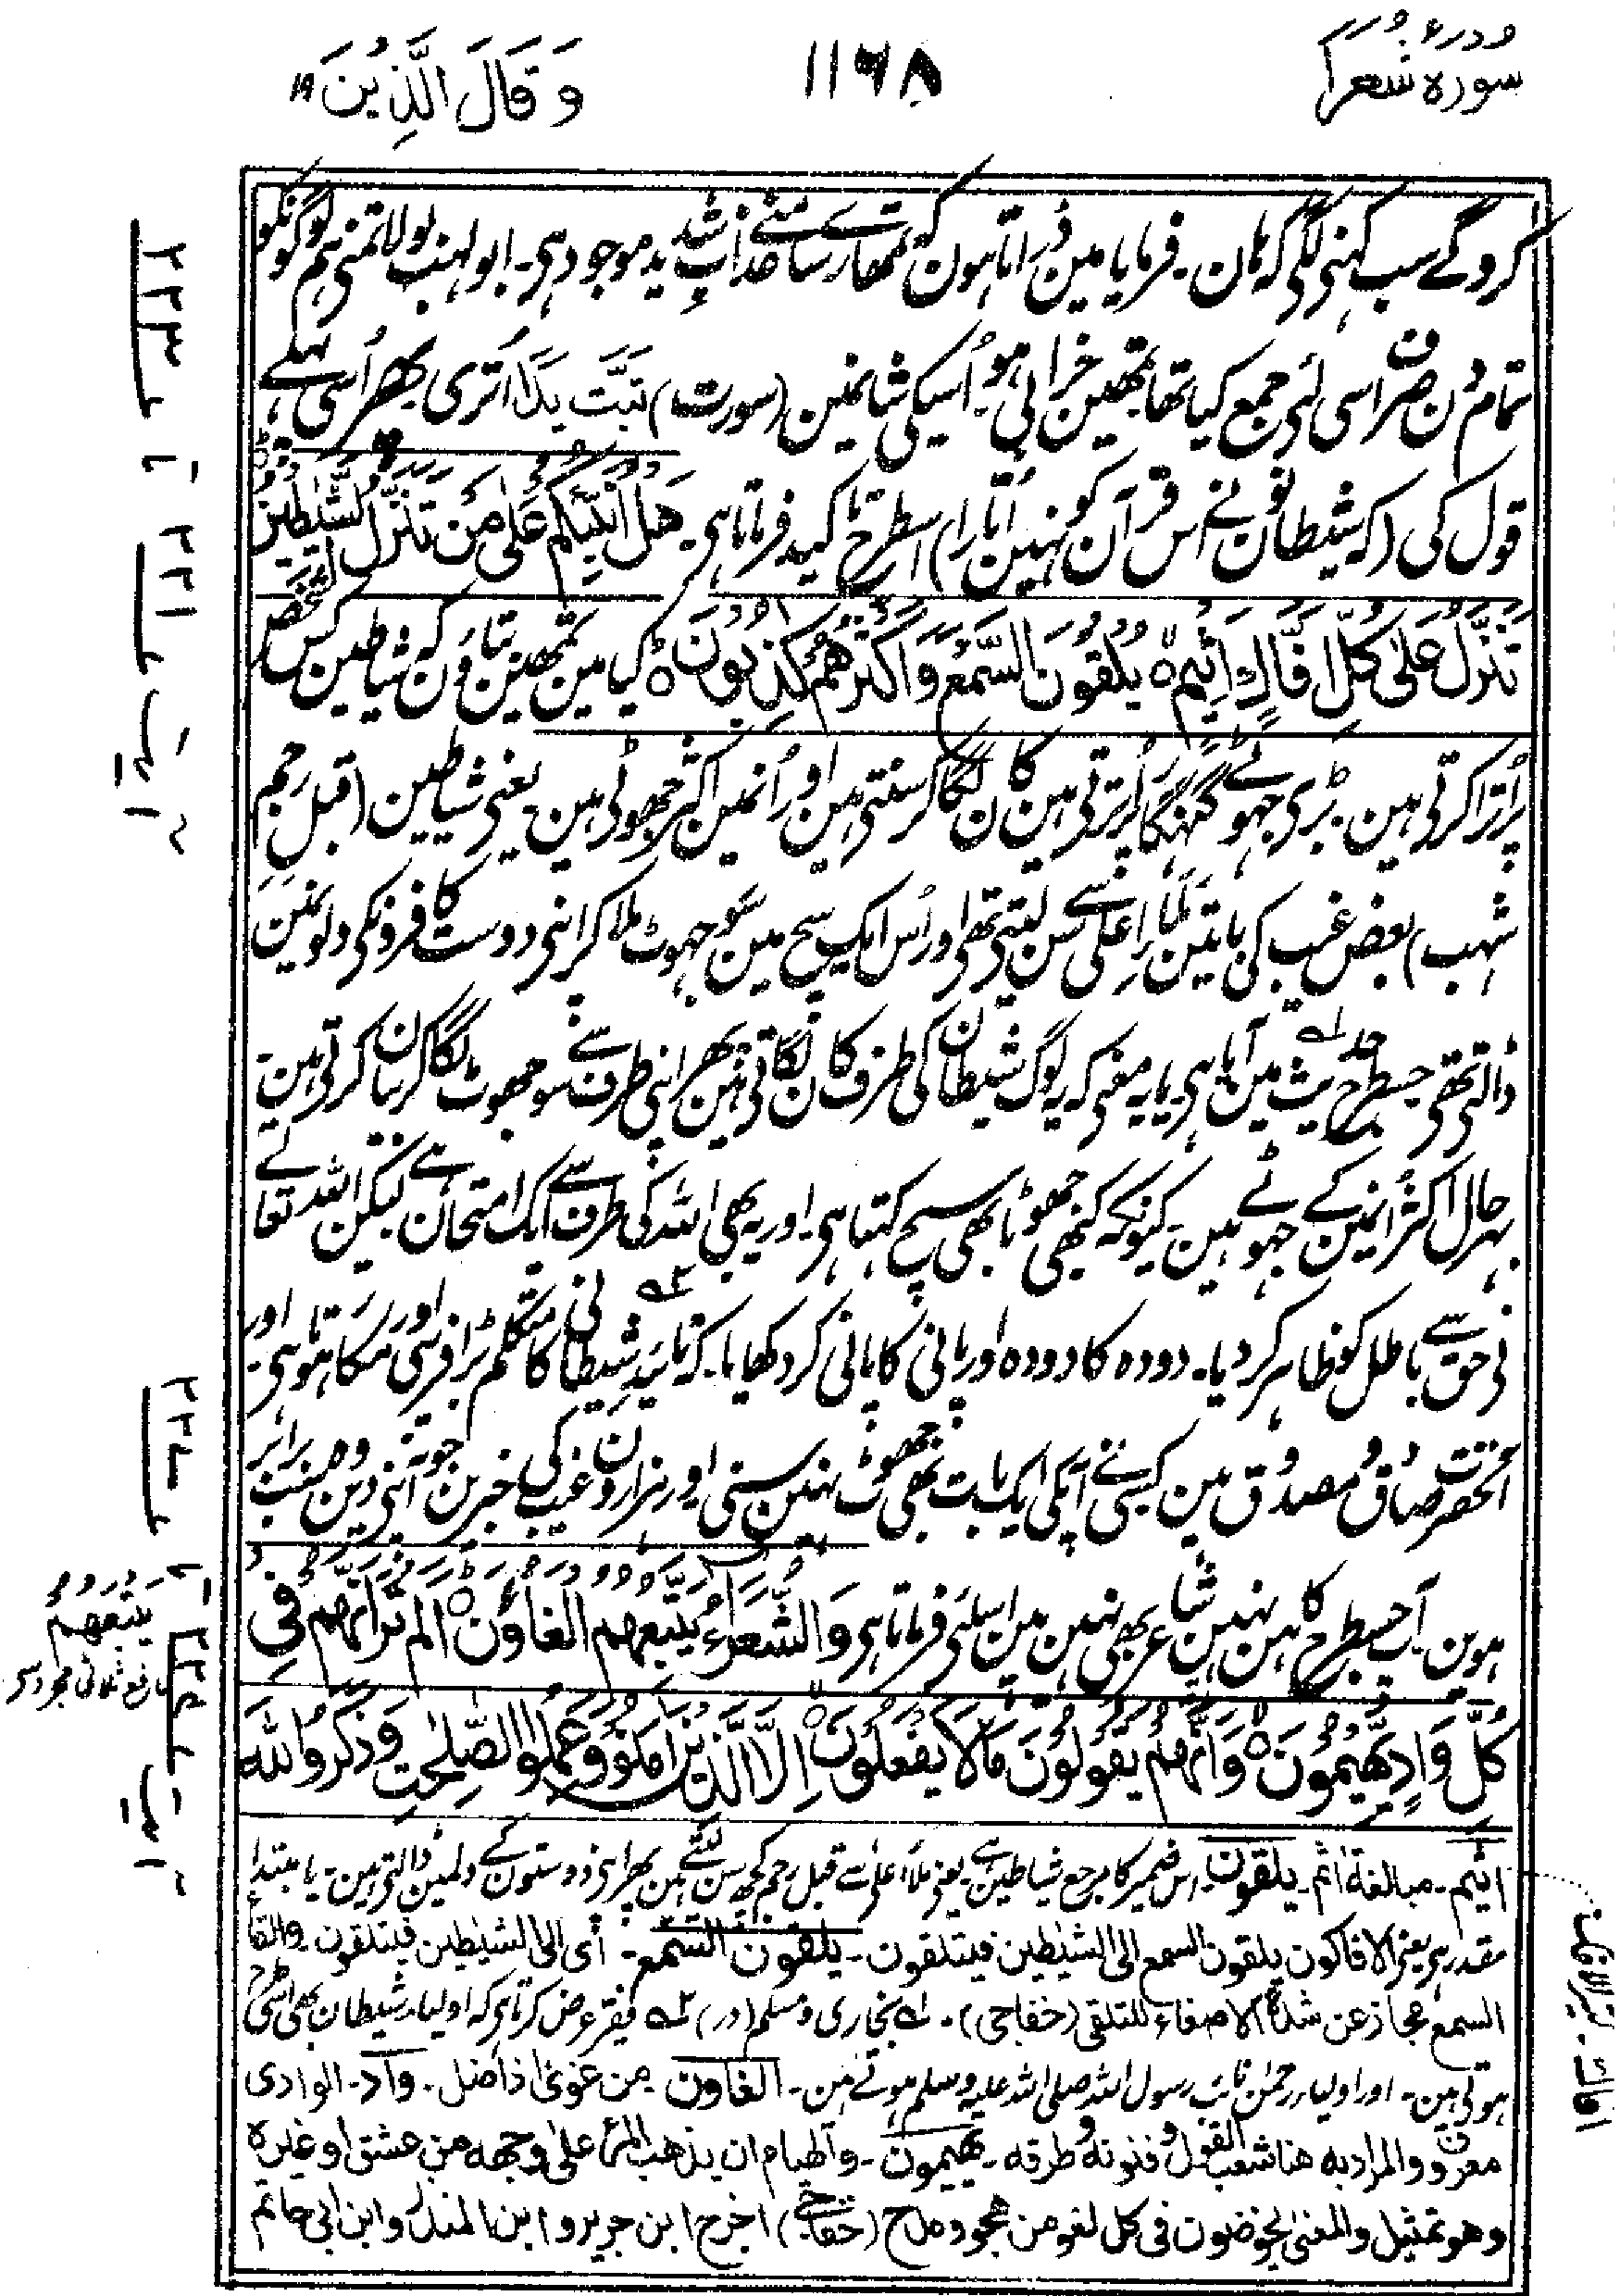 سورۂ شعرا
۱۱۶۸
وَقَالَ الَّذِیْنَ ۱۹
کروگے سب کہنی لگی کہ ہان۔ فرمایا مین ڈراتا ہون کہ تمہارے سامنے عذابِ شدید موجود ہی۔ ابو لہب بولا تمنی ہم لوگونکو
تمام دن صرف اسی لئی جمع کیا تھا تمھین خرابی ہو۔ اُسیکی شانمین (سورت) تَبَّت یَدَا اُتری پھر اُسی پہلے
قول کی (کہ شیطانونے اس قرآن کو نہین اُتارا) اسطرح تاکید فرماتا ہی۔ هَلْ اُنَبِّئُكُمْ عَلٰى مَنْ تَنَزَّلُ الشَّیٰطِیْنُ
تَنَزَّلُ عَلٰى كُلِّ اَفَّاكٍ اَثِیْمٍ ۙ یُّلْقُوْنَ السَّمْعَ وَاَكْثَرُهُمْ كٰذِبُوْنَ ؕ کیا مین تمھین بتاؤن کہ شیاطین کس شخص
پر اُترا کرتی ہین۔ بڑی جھوٹے گنہگار پر اُترتی ہین کان لگا کر سنتی ہین اور اُنمین اکثر جھوٹی ہین۔ یعنی شیاطین (قبل رجم
شہب) بعض غیب کی باتین ملأ اعلیٰ سے سن لیتی تھی اور اُس ایک سچ مین سو جھوٹ ملا کر اپنی دوست کافرونکی دلونمین
ڈالتی تھی جسطرح حدیث مین آیا ہی یا یہ معنی کہ یہ لوگ شیطان کی طرف کان لگاتی ہین پھر اپنی طرف سے سو جھوٹ لگا کر بیان کرتی ہین۔
بہر حال اکثر انمین کے جھوٹے ہین۔ کیونکہ کبھی جھوٹا بھی سچ کہتا ہی۔ اور یہ بھی اللہ کی طرف سے ایک امتحان ہے لیکن اللہ تعالے
نی حق سے باطل کو ظاہر کر دیا۔ دودہ کا دودہ اور پانی کا پانی کر دکھایا۔ کہ تائید شیطانی کا متکلم بڑا فریبی اور مکار ہوتا ہی۔ اور
آنحضرت صادق و مصدوق ہین کسی نے آپکی ایک بات بھی جھوٹ نہین سنی اور ہزارون غیب کی خبرین جو آپنی دین وہ سب برابر
ہوین۔ آپ جسطرح کاہن نہین شاعر بھی نہین ہین اسلئی فرماتا ہی وَالشُّعَرَآءُ یَتَّبِعُهُمُ الْغَاوٗنَ ؕ اَلَمْ تَرَ اَنَّهُمْ فِیْ
كُلِّ وَادٍ یَّهِیْمُوْنَ ۙ وَاَنَّهُمْ یَقُوْلُوْنَ مَا لَا یَفْعَلُوْنَ ۙ اِلَّا الَّذِیْنَ اٰمَنُوْا وَعَمِلُوا الصّٰلِحٰتِ وَذَكَرُوا اللّٰهَ
اثیم۔ مبالغة اثم۔ یلقون۔ اس ضمیر کا مرجع شیاطین ہے۔ یعنی ملأ اعلیٰ سے قبل رجم کچھ سن لیتے ہین پھر اپنی دوستون کے دلمین ڈالتی ہین۔ یا مبتدا
مقدر ہی یعنی الافاکون یلقون السمع الی الشیٰطین فیتلقون۔ یلقون السمع۔ ای الی الشیٰطین فیتلقون۔ والقاء
السمع مجاز عن شدة الاصغاء للتلقی (خفاجی)۔ لہ بخاری و مسلم (در) ۲ہ فقیر عرض کرتا ہی کہ اولیاء شیطان بھی اسی طرح
ہوتی ہین۔ اور اولیاء رحمٰن نائب رسول اللہ صلی اللہ علیہ وسلم ہوتے ہین۔ الغاون۔ من غوی اذا ضل۔ واد۔ الوادی
معروف والمراد به هنا شعب القول وفنونه وطرقه۔ یهیمون۔ والهیام ان یذهب المرء علی وجهه من عشق او غیره
وهو تمثیل والمعنی یخوضون فی کل لغو من هجو ومدح (خفاجی) اخرج ابن جریر وابن المنذر وابن ابی حاتم
۲۲۱
۲۲۳
یَتْبَعُهُمُ
نافع ثلاثی مجرد سی